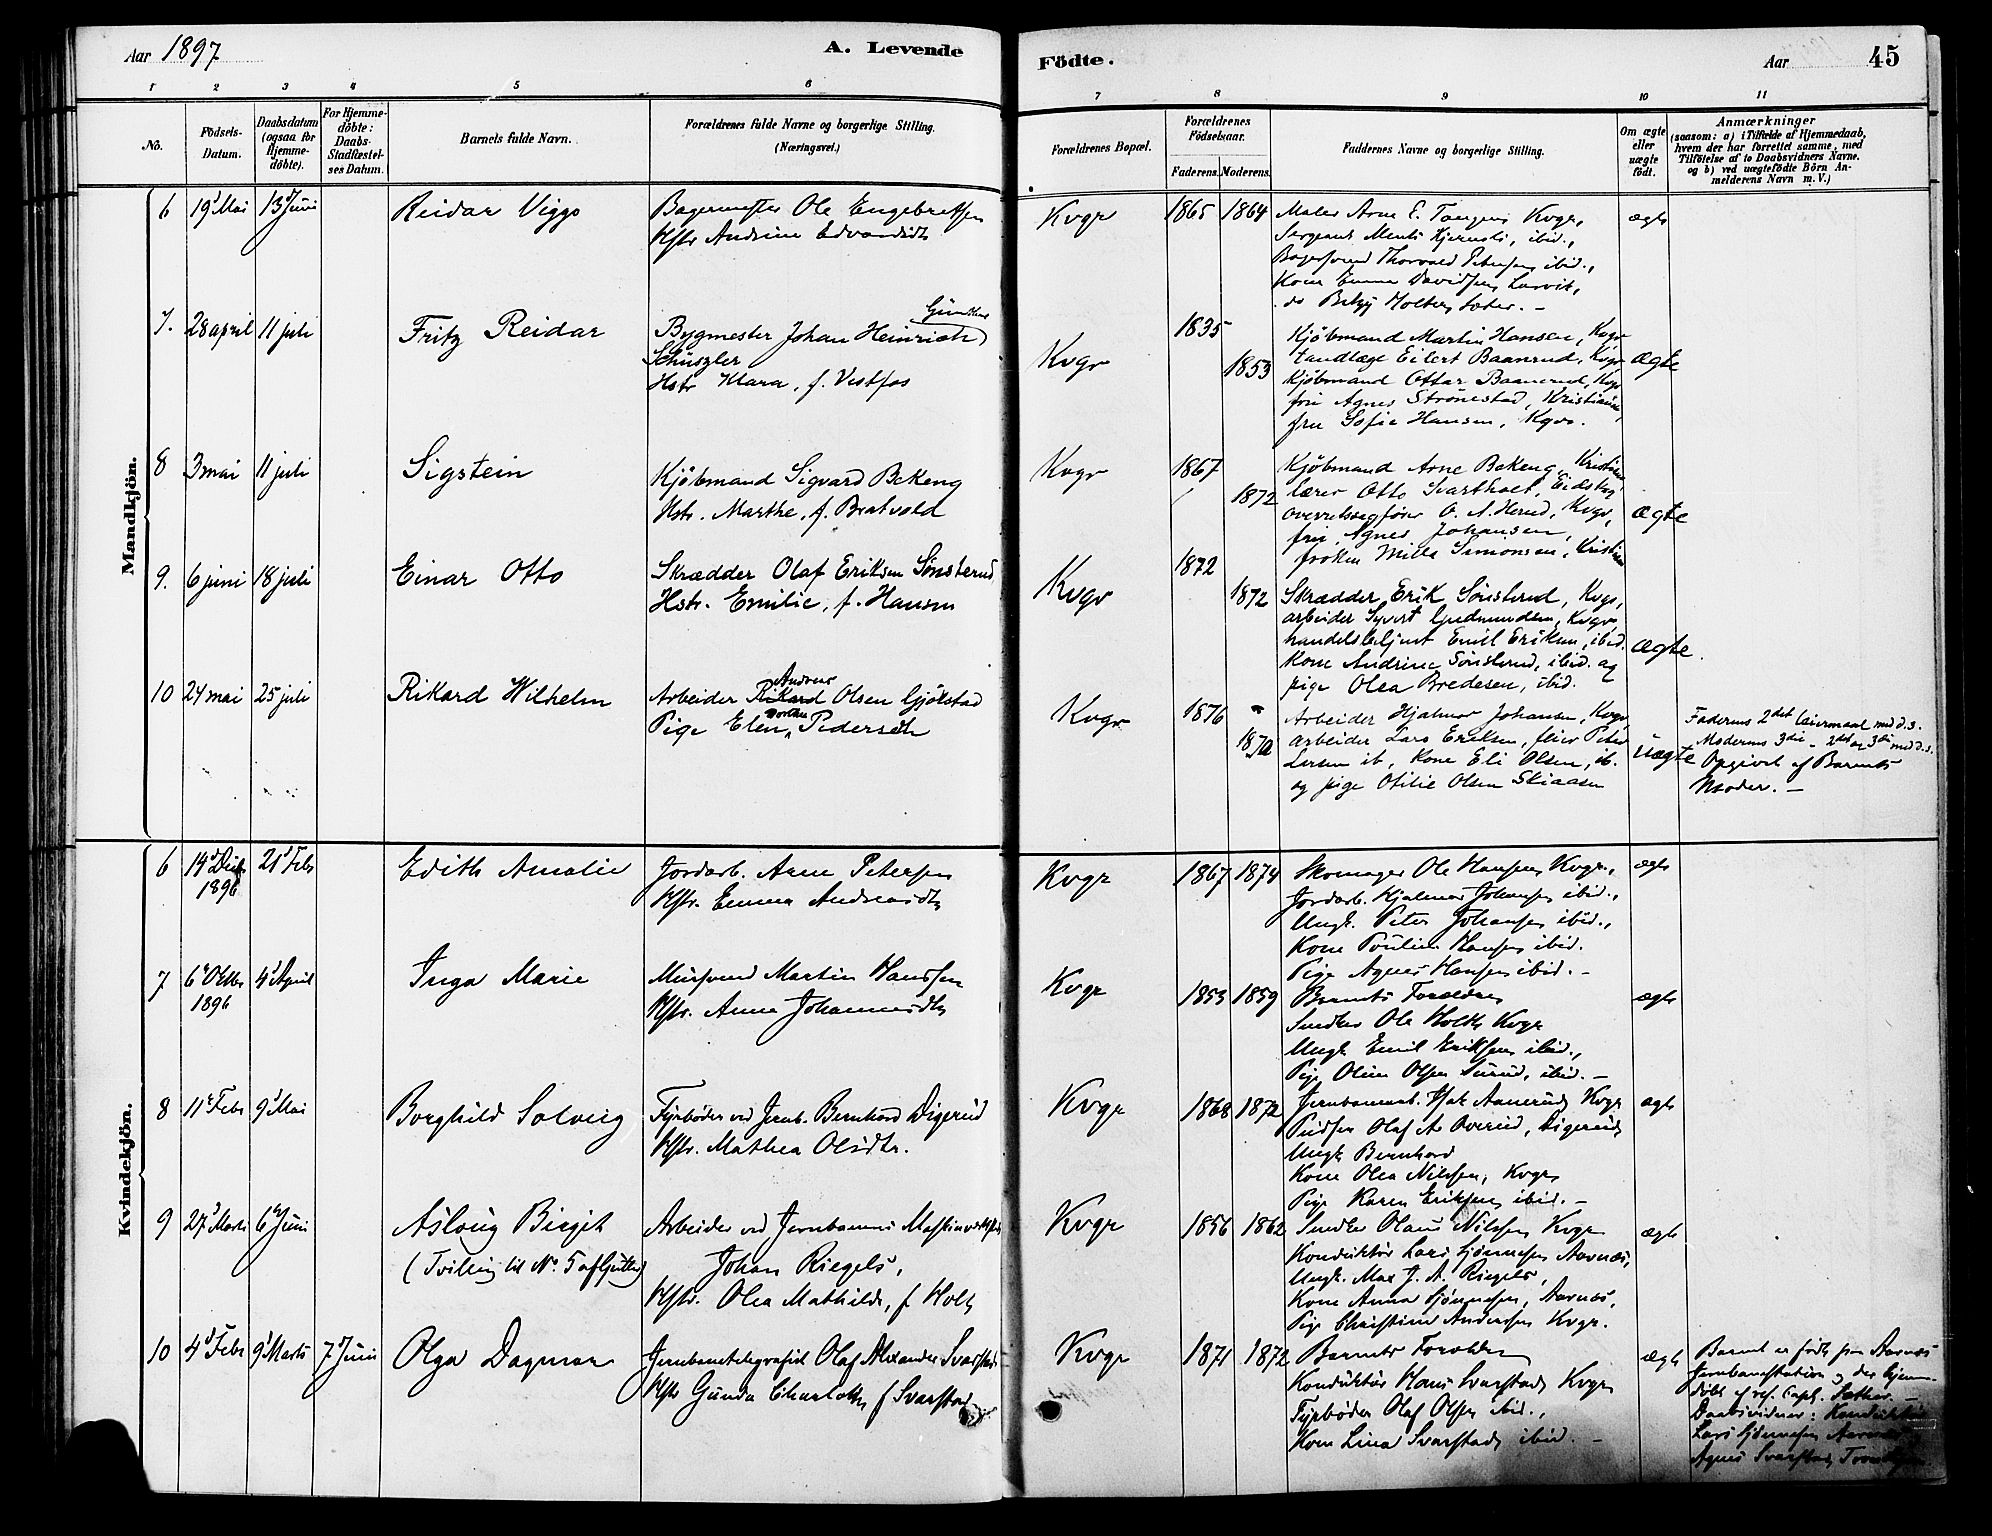 Aar 1897 A. Levende
Födte. Aar 45
1 2 3 4 5 6 7 8 9 10 11
No. Födsels-Datum. Daabsdatum (ogsaa for Hjemmedöbte). For Hjemmedöbte: Daabs-Stadfæstelses Datum. Barnets fulde Navn. Forældrenes fulde Navne og borgerlige Stilling. (Næringsvei.)
Forældrenes Bopæl. Forældrenes Födselsaar. Faderens. Moderens. Faddernes Navne og borgerlige Stilling. Om ægte eller uægte födt. Anmærkninger (saasom: a) i Tilfælde af Hjemmedaab, hvem der har forrettet samme, med Tilföielse af to Daabsvidners Navne. og b) ved uægtefödte Börn Anmelderens Navn m. V.)
Mandkjön.
6 19 Mai 13 Juni Reidar Viggo
Bagermester Ole Engebretsen
Hstr Andrine Edvardsdtr
Kvgr 1865 1864
Maler Arne E. Tangen Kvgr,
Sergeant Ments Hjernsli, ibid.,
Bagersvend Thorvald Petersen ibid.,
Kone Emma Davidsen Larvik,
do Betzy Holberg
ægte
7. 28 april 11 juli Fritz Reidar
Bygmester Johan Heinrich Günther
Schüszler
Hstr Klara, f. Vestfos
Kvgr 1835 1853
Kjöbmand Martin Hansen, Kvgr
tandlæge Eilert Baanrud, Kvgr
Kjöbmand Ottar Baanrud, Kvgr
fru Agnes Strönestad, Kristiania,
fru Sofie Hansen, Kgvr.
ægte
8 3 mai 11 juli Sigstein
Kjöbmand Sigvard Bekeng
Hstr. Marthe, f. Bratvold
Kvgr 1867 1872
Kjöbmand Arne Bekeng, Kristiania
lærer Otto Svartholt, Eidskog
overretssagförer O. A. Herud, Kvgr,
fru Agnes Johansen,
fröken Milla Simonsen, Kristiania
ægte
9. 6 juni 18 juli Einar Otto
Skrædder Olaf Eriksen Sönsterud
Hstr. Emilie, f. Hansen
Kvgr 1872 1872
Skrædder Erik Sönsterud, Kvgr,
arbeider Syvert Gudmundsen, Kvgr,
handelsbetjent Emil Eriksen, ibid.
Kone Andrine Sönsterud, ibid. og
pige Olea Bredesen, ibid.
ægte.
10 24 mai 25 juli Rikard Wilhelm
Arbeider Rikard Andreas Olsen Gjökstad
Pige Elen Dorthea Pedersen
Kvgr 1876 1870
Arbeider Hjalmar Johansen, Kvgr
arbeider Lars Eriksen, Peter
Larsen ib, Kone Eli Olsen, ib.
og pige Otilie Olsen Skiaasen
uægte
Faderens 2det leiermaal med d.s.
Moderens 3die - 2det og 3die med d.s.
Opgivet af Barnets
Moder. —
Kvindekjön.
6 14 Decbr 1896 21 Febr Edith Amalie
Jordarb. Arne Petersen
Hstr. Emma Andreasdtr
Kvgr 1867 1874
Skomager Ole Hansen Kvgr.,
Jordarb. Hjalmar Johansen ibid.,
Ungk. Peter Johansen ibid.,
Kone Pouline Hansen ibid.
Pige Agnes Hansen ibid. -
ægte
7 6 Oktbr 1896 4 April Inga Marie
Mursvend Martin Hanssen
Hstr. Anne Johannesdtr
Kvgr 1853 1859
Barnets Forældre
Snedker Ole Holth Kvgr
Ungk Emil Eriksen ibid.,
Pige Oline Olsen ibid. -
ægte
8 11 Febr 9 Mai Borghild Solveig
Fyrböder ved Jernb. Bernhard Digerud
Hstr. Mathea Olsdtr.
Kvgr 1868 1872
Jernbanearb. Isak Aanerud Kvgr
Olaf A. Overud, Digerud,
Ungk Bernhard
Kone Olea Nilssen, Kvgr
Pige Karen Eriksen ibid. -
ægte
9 27 Marts 6 Juni Aslaug Birgit
(Tvilling til No. 5 af Gutter)
Arbeider ved Jernbanens
Johan Riegels,
Hstr. Olea Mathilde, f Holt
Kvgr 1856 1862
Snedker Olaus Nilssen Kvgr
Konduktör Lars Gjönnesen Aarnæs,
Ungk. Max J. A. Riegels,
Kone Anna Gjönnesen, Aarnæs,
Pige Christine Andersen Kvgr.
ægte
10 4 Febr 9 Marts 7 Juni Olga Dagmar
Jernbanetelegrafist Olaf Alexander Svarstad
Hstr Gunda Charlotte f Svarstad
Kvgr 1871 1872
Barnets Forældre
Konduktör Hans Svarstad, Kvgr
Fyrböder Olaf Olsen ibid.,
Kone Lina Svarstad, ibid. -
ægte
Barnet er födt paa Aarnæs
Jernbanestation og der hjemme-
döbt af res. Capl. Sæther. -
Daabsvidner: Konduktör
Lars Gjönnesen Aarnæs,
Agnes Svarstad,